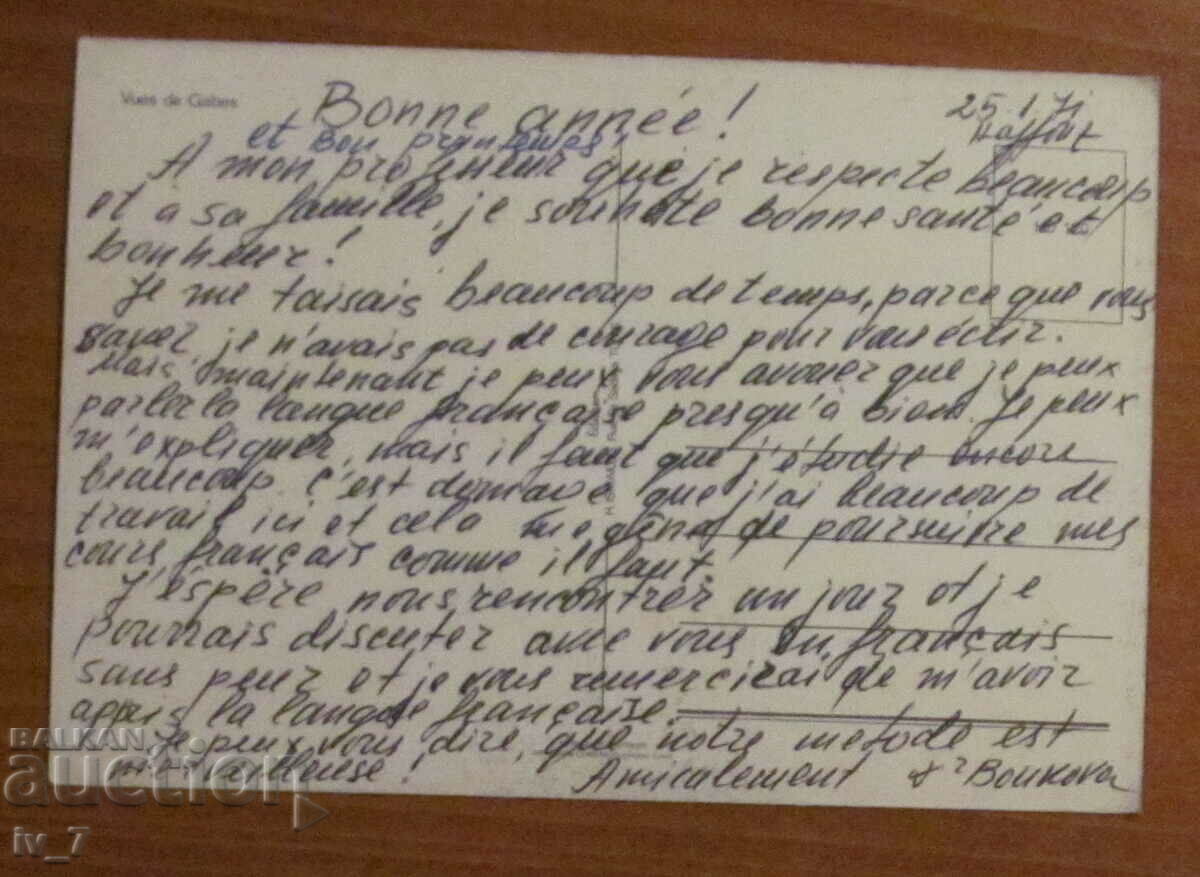 Vues de Gabes
Bonne année !
25.1.71
et bon printemps
A mon professeur que je respecte beaucoup
et à sa famille, je souhete bonne santé et
bonheur !
Je me taisais beaucoup de temps, parce que vous
savez, je n'avais pas de courage pour vous écrir.
Mais maintenant je peux vous avouer que je peux
parler la langue française presqu'à bien. Je peux
m'expliquer, mais il faut que j'étudie encore
beaucoup. C'est domave que j'ai beaucoup de
travail ici et cela me de poursuivre mes
cours français comme il faut.
J'éspère nous rencontrer un jour et je
pourrais discuter avec vous en français
sans peur et je vous remercirai de m'avoir
appris la langue française.
Je peux vous dire, que notre metode est
!
Amicalement Boukova
BALKAN
auction
iv_7